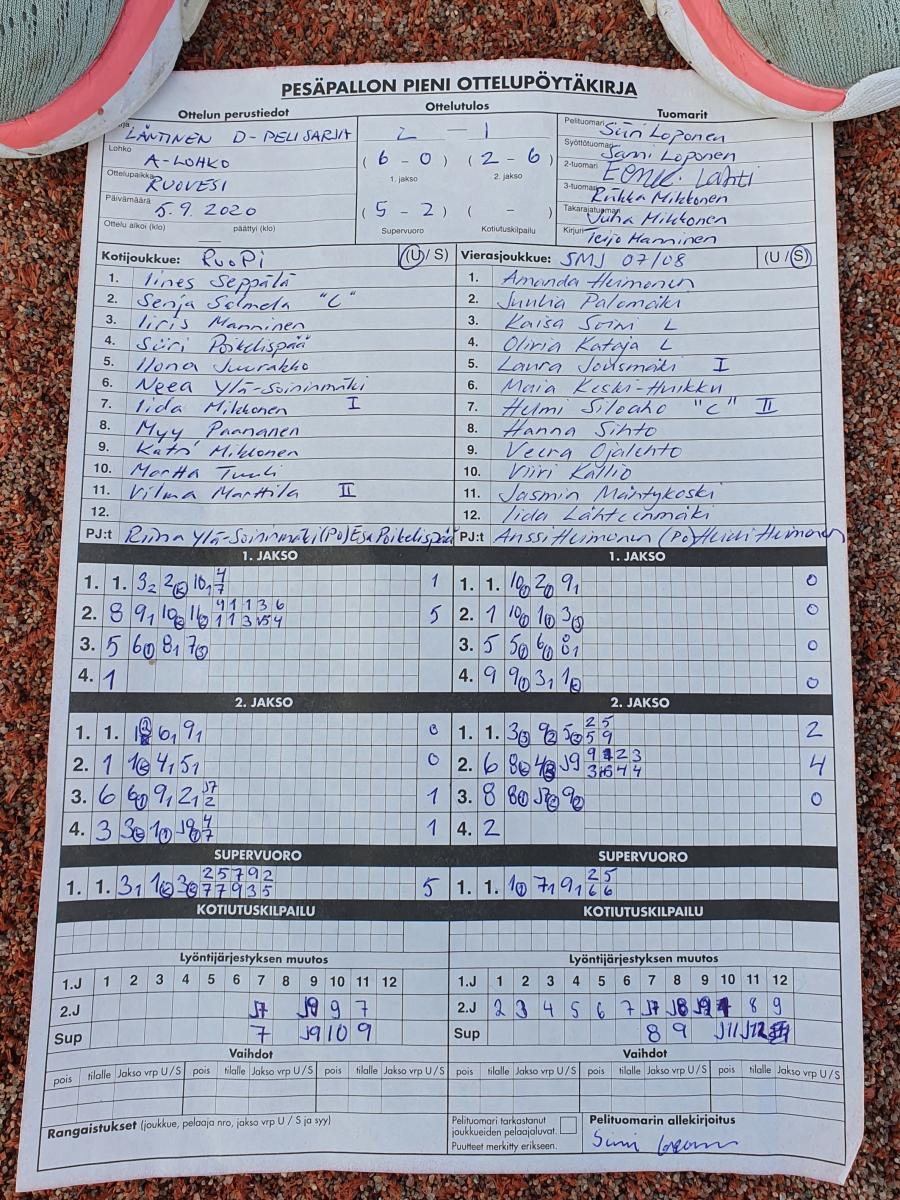 PESÄPALLON PIENI OTTELUPÖYTÄKIRJA
Ottelun perustiedot
LÄNTINEN D-PELISARJA
Lohko A-LOHKO
Ottelupaikka RUOVESI
Päivämäärä 5.9.2020
Ottelu alkoi (klo) päättyi (klo)
Ottelutulos
2 - 1
(6 - 0) (2 - 6)
1. jakso 2. jakso
(5 - 2) ( - )
Supervuoro Kotiutuskilpailu
Tuomarit
Pelituomari Siiri Loponen
Syöttötuomari Sami Loponen
2-tuomari Lahti
3-tuomari Riikka Mikkonen
Takarajatuomari Juha Mikkonen
Kirjuri Teijo Manninen
Kotijoukkue: RuoPi (U/S)
1. Iines Seppälä
2. Senja Salmela "C"
3. Iiris Manninen
4. Siiri Poikelispää
5. Ilona Juurakko
6. Neea Ylä-Soininmäki
7. Iida Mikkonen I
8. Myy Paananen
9. Katri Mikkonen
10. Martta Tuuli
11. Vilma Marttila II
12.
PJ:t Riina Ylä-Soininmäki (Po) Esa Poikelispää
Vierasjoukkue: SMJ 07/08 (U/S)
1. Amanda Heimonen
2. Juulia Palomäki
3. Kaisa Soini L
4. Olivia Kataja L
5. Laura Jousmäki I
6. Maia Keski-Huikku
7. Helmi Siloaho "C" II
8. Hanna Sihto
9. Veera Ojalehto
10. Viiri Kallio
11. Jasmin Mäntykoski
12. Iida Lähteenmäki
PJ:t Anssi Heimonen (Po) Heidi Heimonen
1. JAKSO
1. 1. 3 2 2 10 1 4 7 1
2. 8 9 1 10 11 5
3. 5 6 8 1 7
4. 1
1. JAKSO
1. 1. 10 2 9 1 0
2. 1 10 1 3 0
3. 5 5 6 8 1 0
4. 9 9 3 1 1 0
2. JAKSO
1. 1. 6 1 9 1 0
2. 1 1 4 1 5 1 0
3. 6 6 9 1 2 1 J7 2 1
4. 3 3 1 J9 4 7 1
2. JAKSO
1. 1. 3 9 5 2 5 5 9 2
2. 6 8 4 J9 4
3. 8 8 J7 9 0
4. 2
SUPERVUORO
1. 1. 3 1 1 3 2 5 7 9 2 7 7 9 3 5 5
SUPERVUORO
1. 1. 1 7 1 9 1 2 5 6 6
KOTIUTUSKILPAILU
KOTIUTUSKILPAILU
Lyöntijärjestyksen muutos
1.J 1 2 3 4 5 6 7 8 9 10 11 12
2.J J7 J9 9 7
Sup 7 J9 10 9
Lyöntijärjestyksen muutos
1.J 1 2 3 4 5 6 7 8 9 10 11 12
2.J 2 3 4 5 6 7 J7 J8 J9 8 9
Sup 8 9 J11 J12
Vaihdot
pois tilalle Jakso vrp U/S pois tilalle Jakso vrp U/S pois tilalle Jakso vrp U/S
Vaihdot
pois tilalle Jakso vrp U/S pois tilalle Jakso vrp U/S pois tilalle Jakso vrp U/S
Rangaistukset (joukkue, pelaaja nro, jakso vrp U / S ja syy)
Pelituomari tarkastanut
joukkueiden pelaajaluvat.
Puutteet merkitty erikseen.
Pelituomarin allekirjoitus